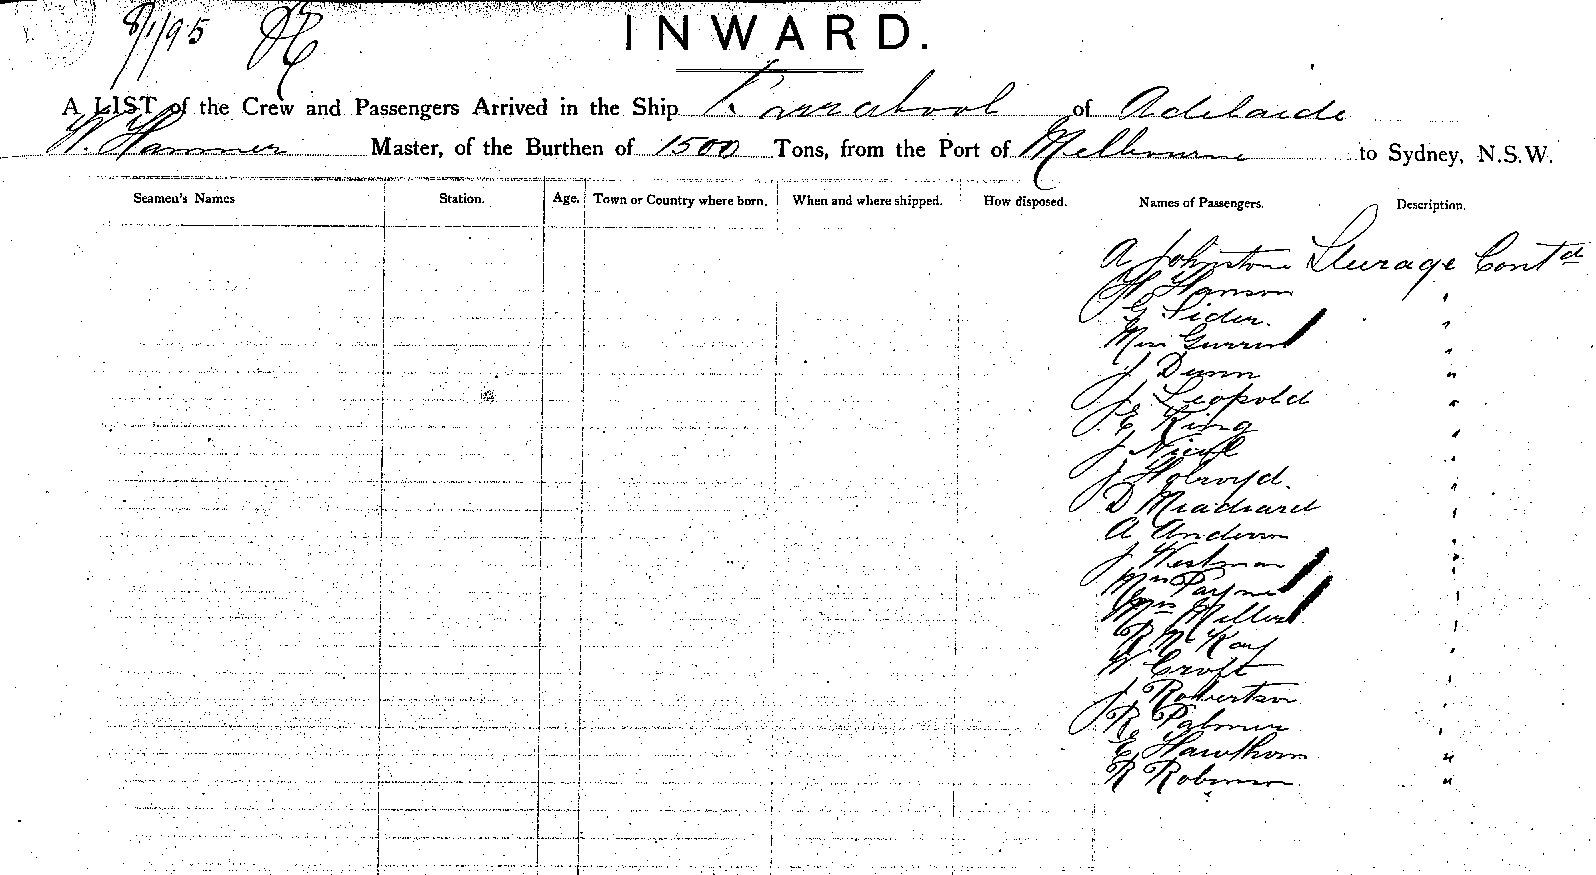 8/1/95
INWARD.
A LIST of the Crew and Passengers Arrived in the Ship Barrabool of Adelaide
W. Hammer Master, of the Burthen of 1500 Tons, from the Port of Melbourne to Sydney, N.S.W.
Seamen's Names Station. Age. Town or Country where born. When and where shipped. How disposed. Names of Passengers. Description.
A Johnstone Steerage Cont'd
H Hanson "
G Sider. "
Miss "
J Dunn "
J Leopold "
E King "
J Nicol "
J Holroyd. "
D "
A Anderson "
J Westman "
Mrs Payne "
Mrs Miller "
R McKay "
W Croft "
J Robertson "
R Palmer "
E Hawthorn "
R Robinson "